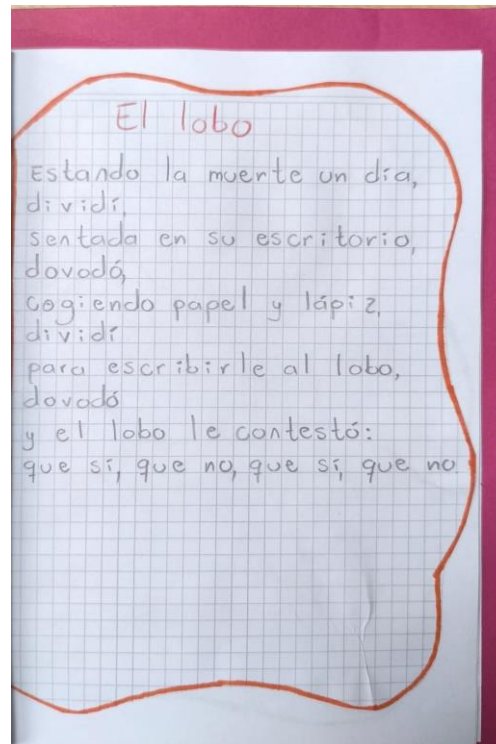 El lobo
Estando la muerte un día,
dividí,
sentada en su escritorio,
dovodó,
cogiendo papel y lápiz,
dividí
para escribirle al lobo,
dovodó
y el lobo le contestó:
que sí, que no, que sí, que no